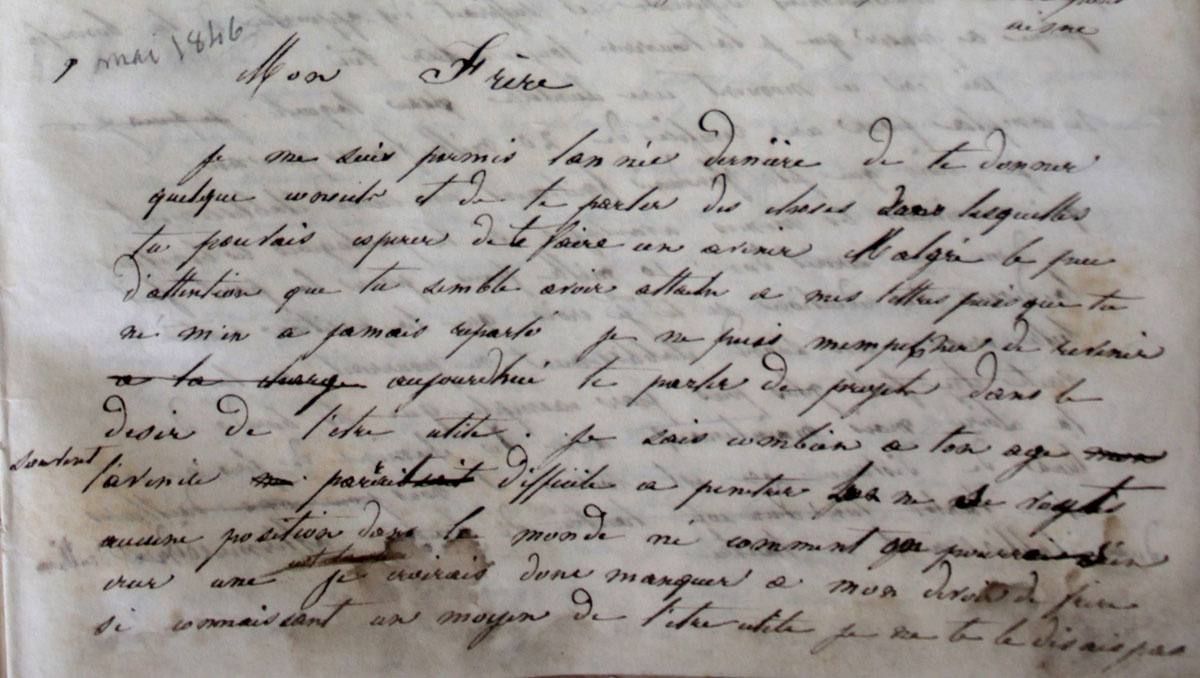 aisne
mai 1846
Mon Frère
Je me suis permis l'année dernière de te donner
quelque conseils et de te parler des choses dans lesquelles
tu pouvais esperer de te faire un avenir Malgré le peu
d'attention que tu semble avoir attaché a mes lettres puisque tu
ne m'en a jamais reparlé je ne puis m'empecher de revenir
a la charge aujourdhui te parler de projets dans le
desir de t'etre utile. Je sais combien a ton age mon
souvent
l'avenir parait difficile a penetrer ne voyés
aucune position dans le monde ni comment on pourrai s'en
creer une je croirais donc manquer a mon devoir de frere
si connaissant un moyen de t'etre utile je ne te le disais pas